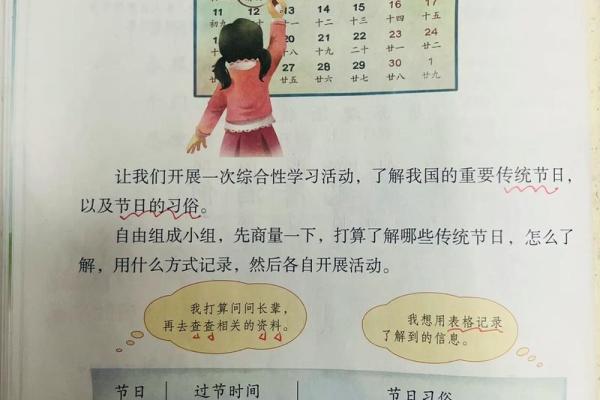 11 12 13 14 15 16 17
初九 十三 十四 十五
20 21 22 23 24
十九 二十 廿一 廿二
27 28 29 30 1
廿五 廿六 廿七 廿八 廿九
让我们开展一次综合性学习活动，了解我国的重要传统节日，
以及节日的习俗。
自由组成小组，先商量一下，打算了解哪些传统节日，怎么了
解，用什么方式记录，然后各自开展活动。
我打算问问长辈，
再去查查相关的资料。
我想用表格记录
了解到的信息。
节日 过节时间 节日习俗